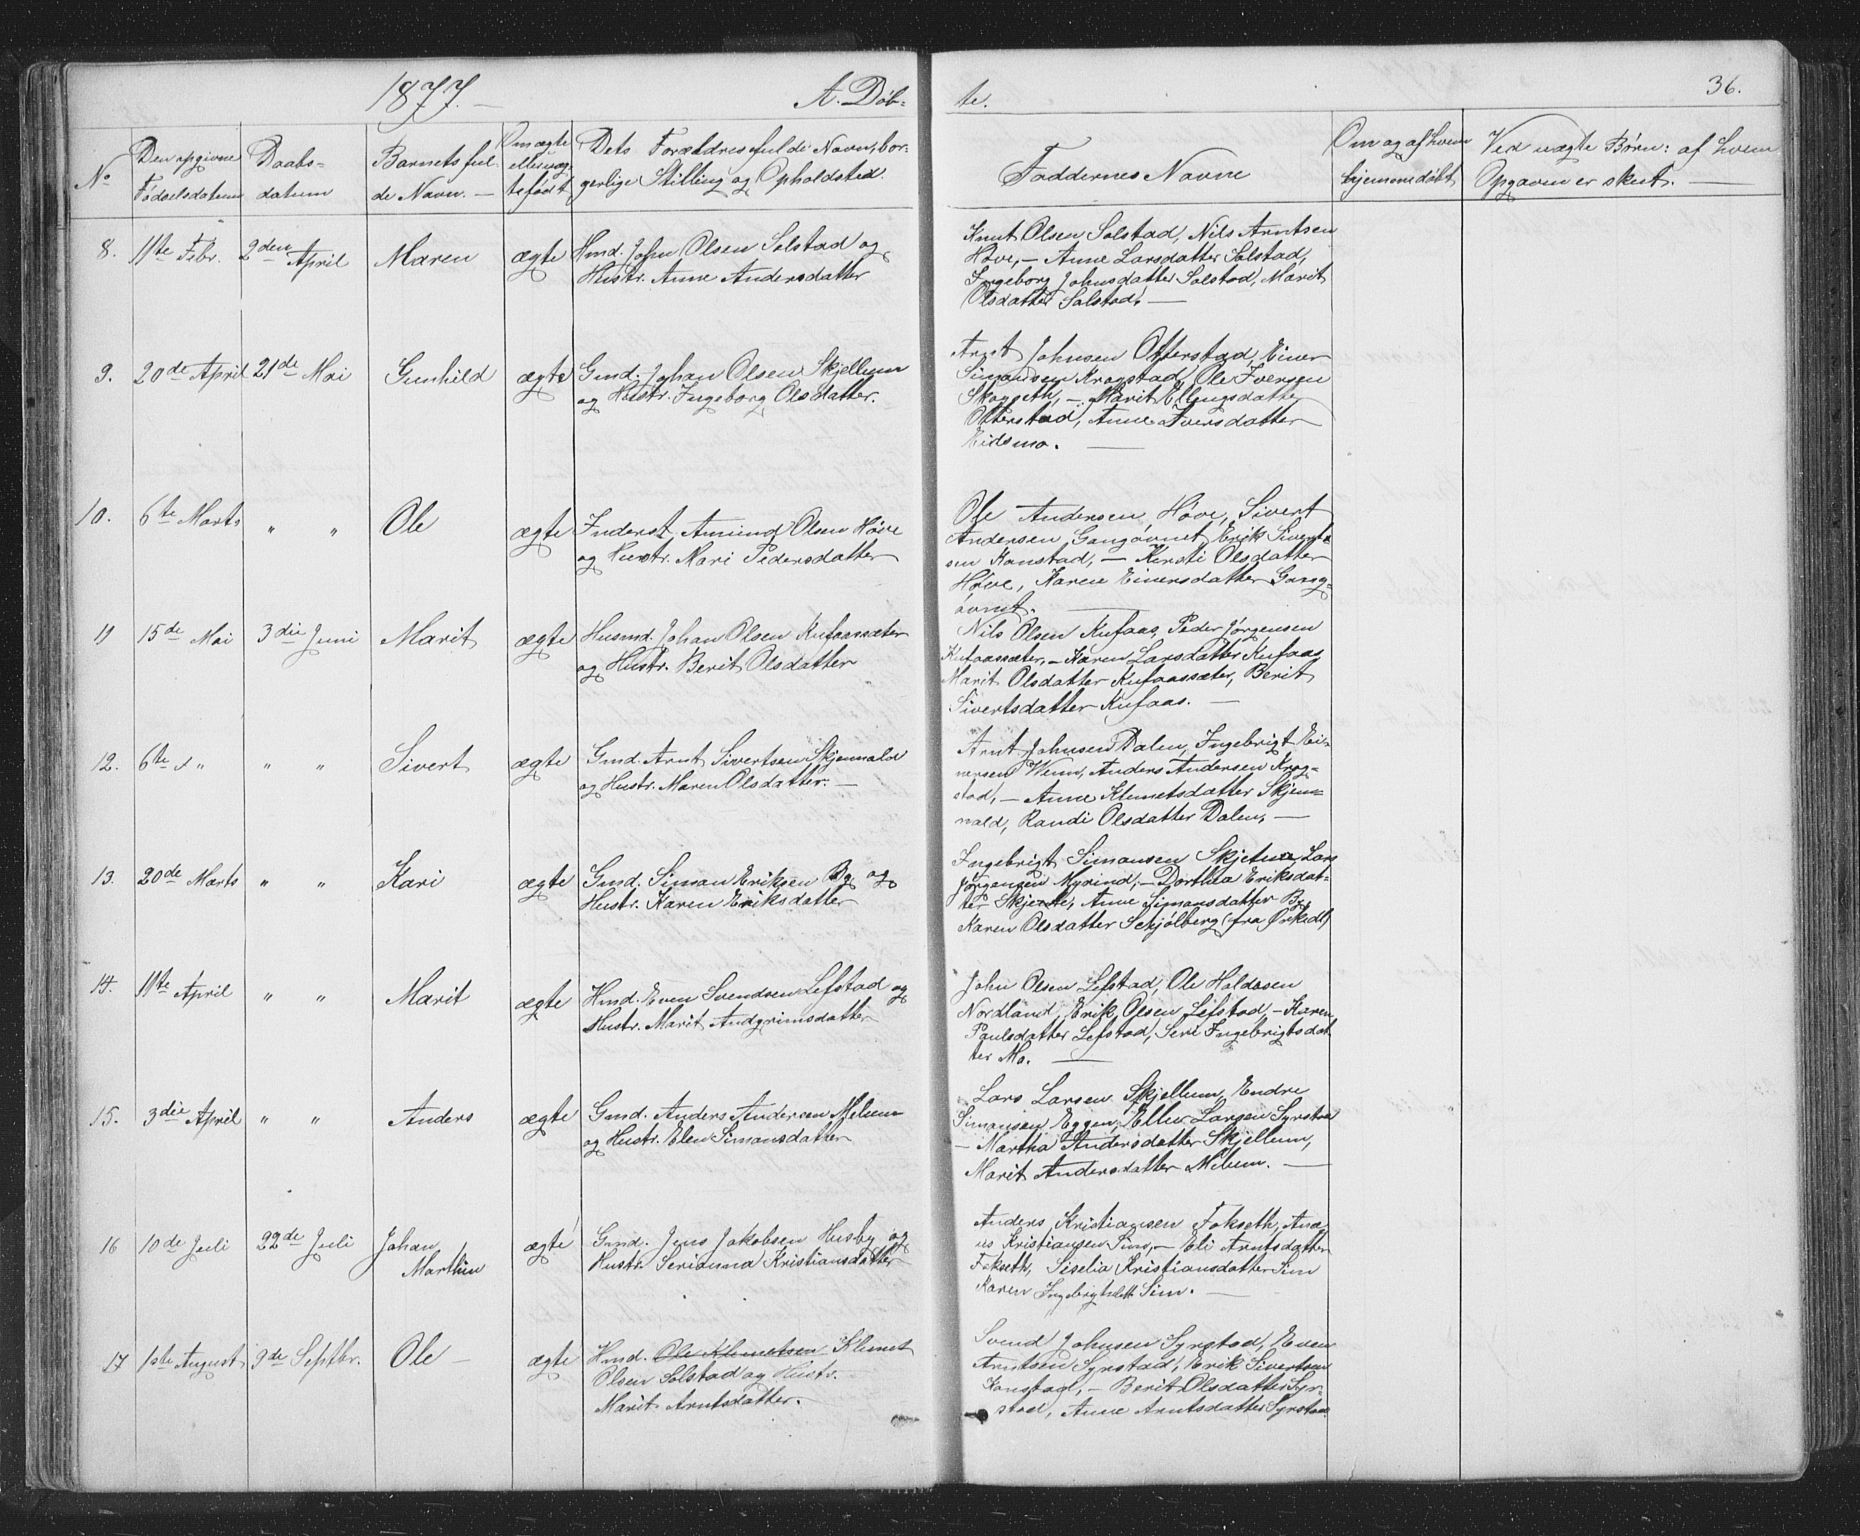 1877. —
A. Døb-
te.
36.
No
Den opgivne
Fødselsdatum
Daabs-
datum
Barnets ful-
de Navn. —
Om ægte
eller uæg-
tefødt
Dets Forældres fulde Navn, bor-
gerlige Stilling og Opholdsted.
Faddernes Navne
Om og af hvem
hjemmedøbt
Ved uægte Børn: af hvem
Opgaven er skeet. —
8. 11te Febr. 2den April Maren ægte
Hmd. John Olsen Solstad og
Hustr. Anne Andersdatter
Knut Olsen Solstad, Nils Arntsen
Høve, – Anne Larsdatter Solstad,
Ingeborg Johnsdatter Solstad, Marit
Olsdatter Solstad. —
9. 20de April 21de Mai Gunhild ægte
Gmd. Johan Olsen Skjellum
og Hustr. Ingeborg Olsdatter.
Arnt Johnsen Otterstad, Einer
Simonsen Krogstad, Ole Iversen
– Marit Ellingsdatter
Otterstad, Anne Iversdatter
Eidsmo. —
10. 6te Marts " " Ole ægte
Inderst Amund Olsen Høve
og Hustr. Mari Pedersdatter
Ole Andersen Høve, Sivert
Andersen Gangøvnet, Erik Sivert-
sen Konstad, – Kirsti Olsdatter
Høve, Karen Einersdatter Gang-
øvnet. —
11 15de Mai 3die Juni Marit ægte
Husmd. Johan Olsen Kufaassæter
og Hustr. Berit Olsdatter
Nils Olsen Kufaas, Peder Jørgensen
Kufaassæter, – Karen Larsdatter Kufaas
Marit Olsdatter Kufaassæter, Berit
Sivertsdatter Kufaas. —
12. 6te " " " Sivert ægte
Gmd. Arnt Sivertsen Skjenald
og Hustr. Maren Olsdatter. —
Arnt Johnsen Dalen, Ingebrigt Ei-
nersen Winn, Anders Andersen Krog-
stad, – Anne Klemetsdatter Skjen-
nald, Randi Olsdatter Dalen, —
13. 20de Marts " " Kari ægte
Gmd. Simon Eriksen By og
Hustr. Karen Eriksdatter
Ingebrigt Simonsen Skjetne, Lars
Jørgensen Myrind, – Dorthea Eriksdat-
ter Skjetne, Anne Simonsdatter By,
Karen Olsdatter Schjølberg (fra Ørkedl)
14. 11te April " " Marit ægte
Hmd. Even Svendsen Lefstad og
Hustr. Marit Andgrimsdatter
John Olsen Lefstad, Ole Haldosen
Nordland, Erik Olsen Lefstad, – Karen
Paulsdatter Lefstad, Seri Ingebrigtsdat
ter Mo. —
15. 3die April " " Anders ægte
Gmd. Anders Andersen Melum
og Hustr. Elen Simonsdatter
Lars Larsen Skjellum, Endre
Simonsen Eggen, Ellev Larsen Syrstad
– Martha Andersdatter Skjellum,
Marit Andersdatter Melum. —
16 10de Juli 22de Juli Johan
Marthin
ægte
Gmd. Jens Jakobsen Husby og
Hustr. Serianna Kristiansdatter
Anders Kristiansen Fokseth,
Kristiansen Sim, – Eli Arntsdatter
Fokseth, Siselia Kristiansdatter Sim
Karen Ingebrigtsdtt Sim. —
17 1ste August 9de Septbr. Ole – ægte
Hmd. Ole Klemetsen Klemet
Olsen Solstad og Hustr.
Marit Arntsdatter.
Svend Johnsen Syrstad, Even
Arntsen Syrstad, Erik Sivertsen
Konstad, – Berit Olsdatter Syr-
stad, Anne Arntsdatter Syrstad